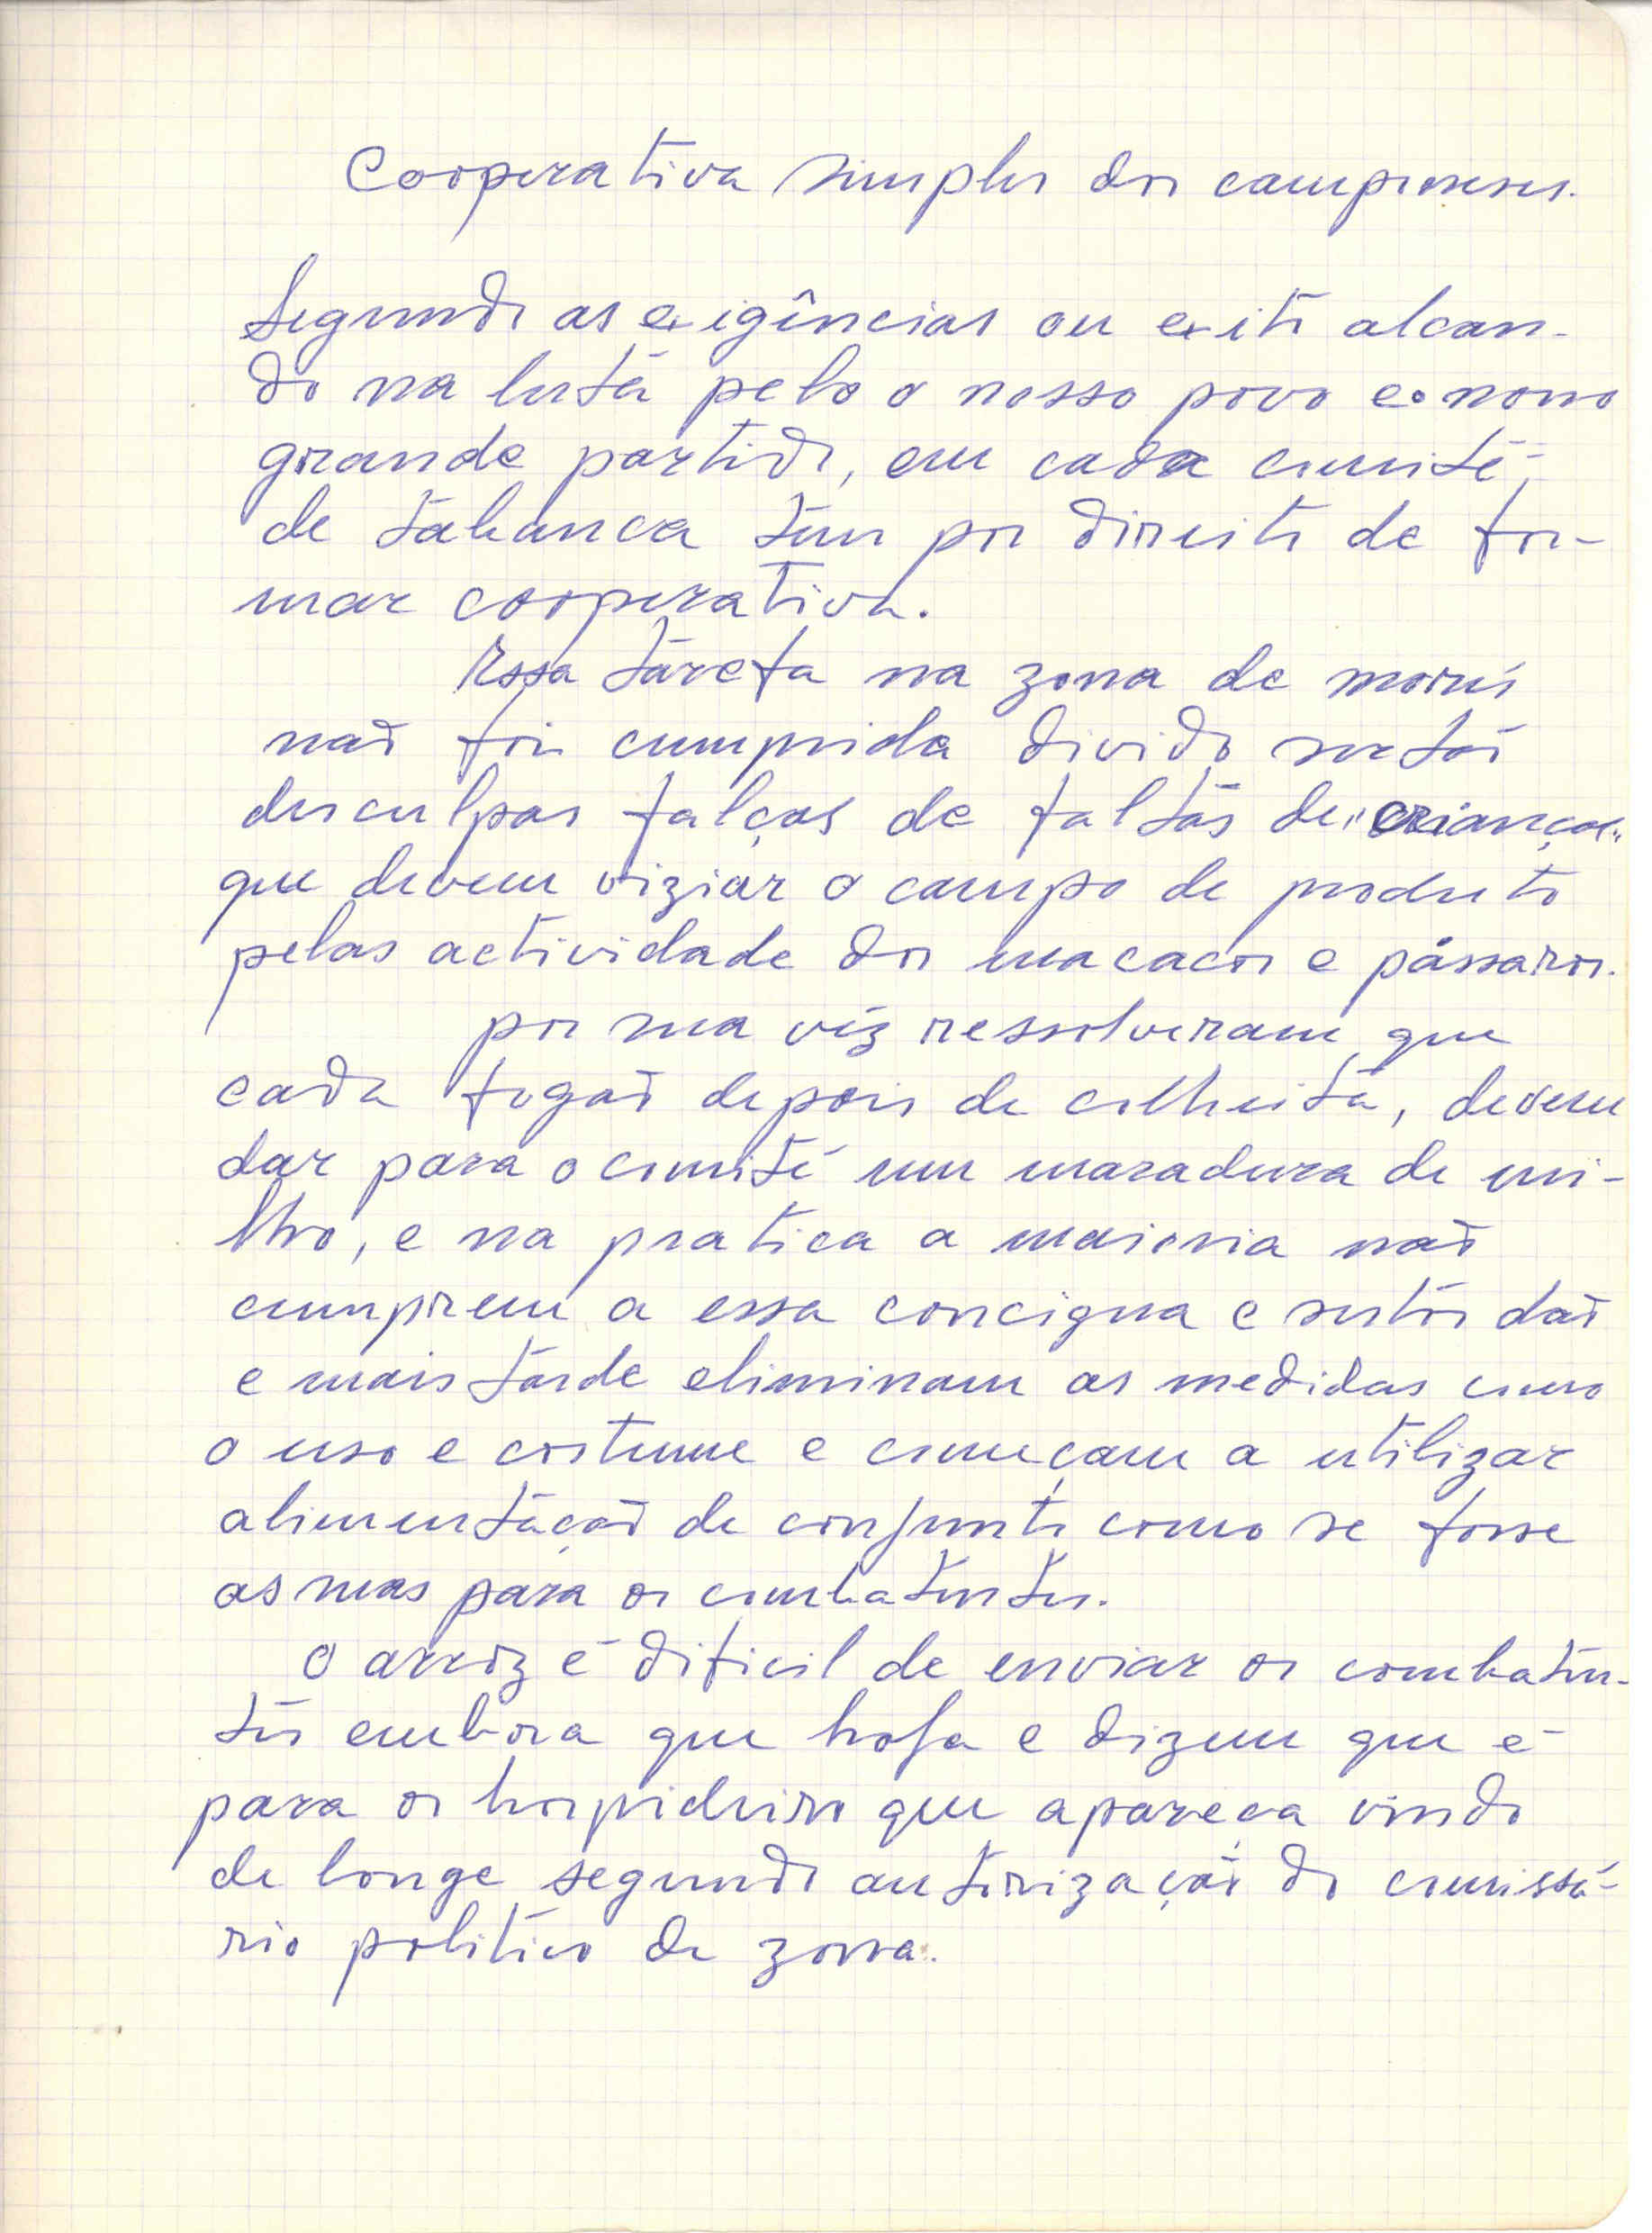 Cooperativa simples dos camponeses.
Segundo as exigências ou exito alcan-
do na luta pelo o nosso povo e o nosso
grande partido, em cada comité
de tabanca têm por direito de for-
mar cooperativa.
Essa tarefa na zona de morés
não foi cumprida divido
desculpas falças de faltas de "crianças"
que devem viziar o campo de produto
pelas actividade dos macacos e pássaros.
por sua vêz ressolveram que
cada fogão depois de colheita, devem
dar para o comité um maradura de mi-
lho, e na pratica a maioria não
cumprem a essa concigna e outros dão
e mais tarde eliminam as medidas como
o uso e costume e começam a utilizar
alimentação de conjunto como se fosse
as suas para os combatentes.
O arroz é dificil de enviar os combaten-
tes embora que haja e dizem que é
para os hospideiro que apareça vindo
de longe segundo autorização do comissá-
rio politico de zona.